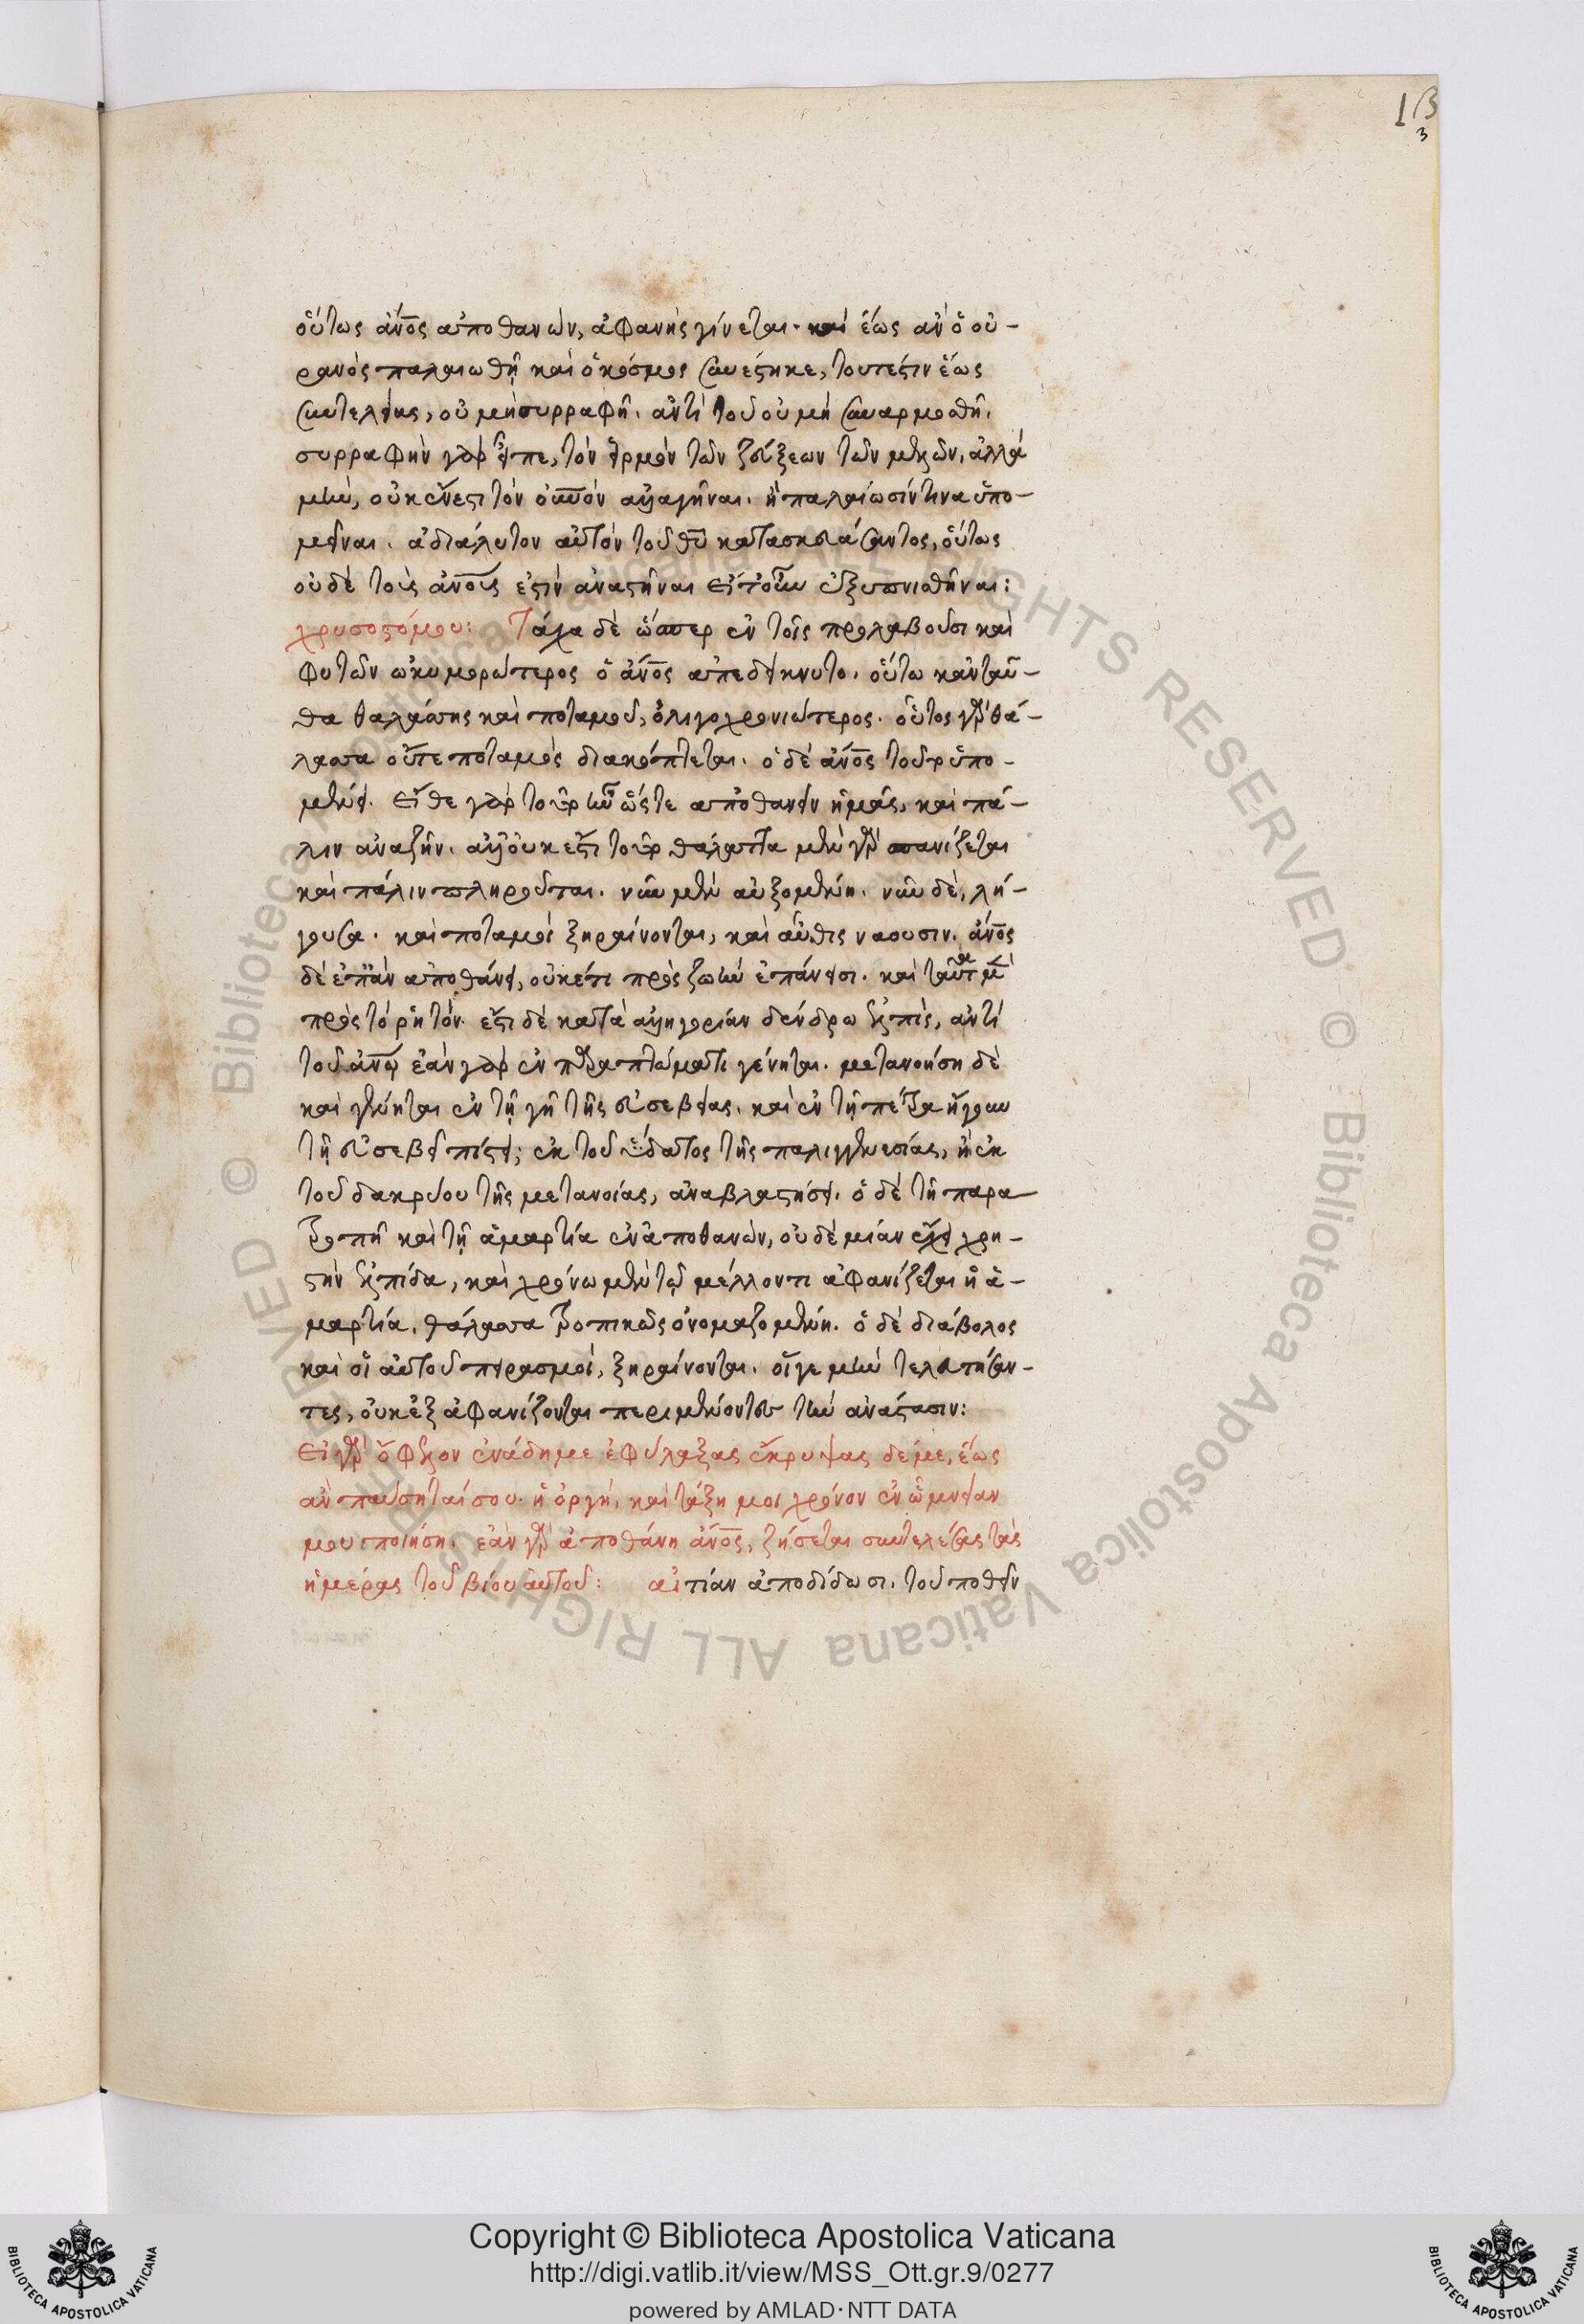 1β
3
οὕτως ἄνος ἀποθανὼν, ἀφανὴς γίνεται. καὶ ἕως ἂν ὁ οὐ-
ρανὸς παλαιωθῇ καὶ ὁ κόσμος συνέστηκε, τουτέστιν ἕως
συντελείας, οὐ μὴ συρραφῇ. ἀντὶ τοῦ οὐ μὴ συναρμοσθῇ.
συρραφὴν γὰρ εἶπε, τὸν εἱρμὸν τῶν ζεύξεων τῶν μελῶν, ἀλλὰ
μὴν, οὐκ ἔνεστι τὸν οὐνον ἀλλαγῆναι. ἢ παλαίωσίν τινα ὑπο-
μεῖναι. ἀδιάλυτον αὐτὸν τοῦ θυ κατασκευάσαντος, οὕτως
οὐδὲ τοὺς ἀνους ἐστὶν ἀναστῆναι εἴτουν ἐξυπνισθῆναι:
χρυσοστόμου: Τάχα δὲ ὥσπερ ἐν τοῖς προλαβοῦσι καὶ
φυτῶν ὠκυμορώτερος ὁ ἄνος ἀπεδείκνυτο. οὕτω κἀνταῦ-
θα θαλάσσης καὶ ποταμοῦ, ὀλιγοχρονιώτερος. οὗτος γὰρ θά-
λασσα οὔτε ποταμὸς διακόπτεται. ὁ δὲ ἄνος τοῦτο ὑπο-
μένει. εἴθε γὰρ τοῦτο ἦν ὥστε ἀποθανεῖν ἡμᾶς, καὶ πά-
λιν ἀναζῆν. ἀλλ' οὐκ ἔστι τοῦτο θάλαττα μὲν γὰρ σπανίζεται
καὶ πάλιν πληροῦται. νῦν μὲν αὐξομένη. νῦν δὲ, λή-
γουσα. καὶ ποταμοὶ ξηραίνονται, καὶ αὖθις νάουσιν. ἄνος
δὲ ἐπὰν ἀποθάνῃ, οὐκέτι πρὸς ζωὴν ἐπάνεισι. καὶ ταῦτα μὲν
πρὸς τὸ ῥητόν. ἔστι δὲ κατὰ ἀλληγορίαν δένδρω ἐλπὶς, ἀντὶ
τοῦ ἀνω ἐὰν γὰρ ἐν παραπτώματι γένηται. μετανοήση δὲ
καὶ γένηται ἐν τῇ γῇ τῆς εὐσεβείας. καὶ ἐν τῇ πέτρα ἤγουν
τῇ εὐσεβεῖ πίστει; ἐκ τοῦ ὕδατος τῆς παλιγγενεσίας, ἢ ἐκ
τοῦ δακρύου τῆς μετανοίας, ἀναβλαστήσει. ὁ δὲ τῇ παρα
τροπῇ καὶ τῇ ἁμαρτία ἐναποθανὼν, οὐδεμίαν ἔχει χρη-
στὴν ἐλπίδα, καὶ χρόνω μὲν τῷ μέλλοντι ἀφανίζεται ἡ ἁ-
μαρτία. θάλασσα τροπικῶς ὀνομαζομένη. ὁ δὲ διάβολος
καὶ οἱ αὐτοῦ πειρασμοὶ, ξηραίνονται. οἵγε μὴν τελευτήσαν-
τες, οὐκ ἐξαφανίζονται περιμένοντες τὴν ἀνάστασιν:
εἰ γὰρ ὄφελον ἐν ἅδη με ἐφύλαξας ἔκρυψας δέ με, ἕως
ἂν παύσηταί σου ἡ ὀργή, καὶ τάξη μοι χρόνον ἐν ᾧ μνείαν
μου ποιήση. ἐὰν γὰρ ἀποθάνη ἄνος, ζήσεται συντελέσας τὰς
ἡμέρας τοῦ βίου αὐτοῦ: αἰτίαν ἀποδίδωσι. τοῦ ποθεῖν
Copyright © Biblioteca Apostolica Vaticana
http://digi.vatlib.it/view/MSS_Ott.gr.9/0277
powered by AMLAD·NTT DATA